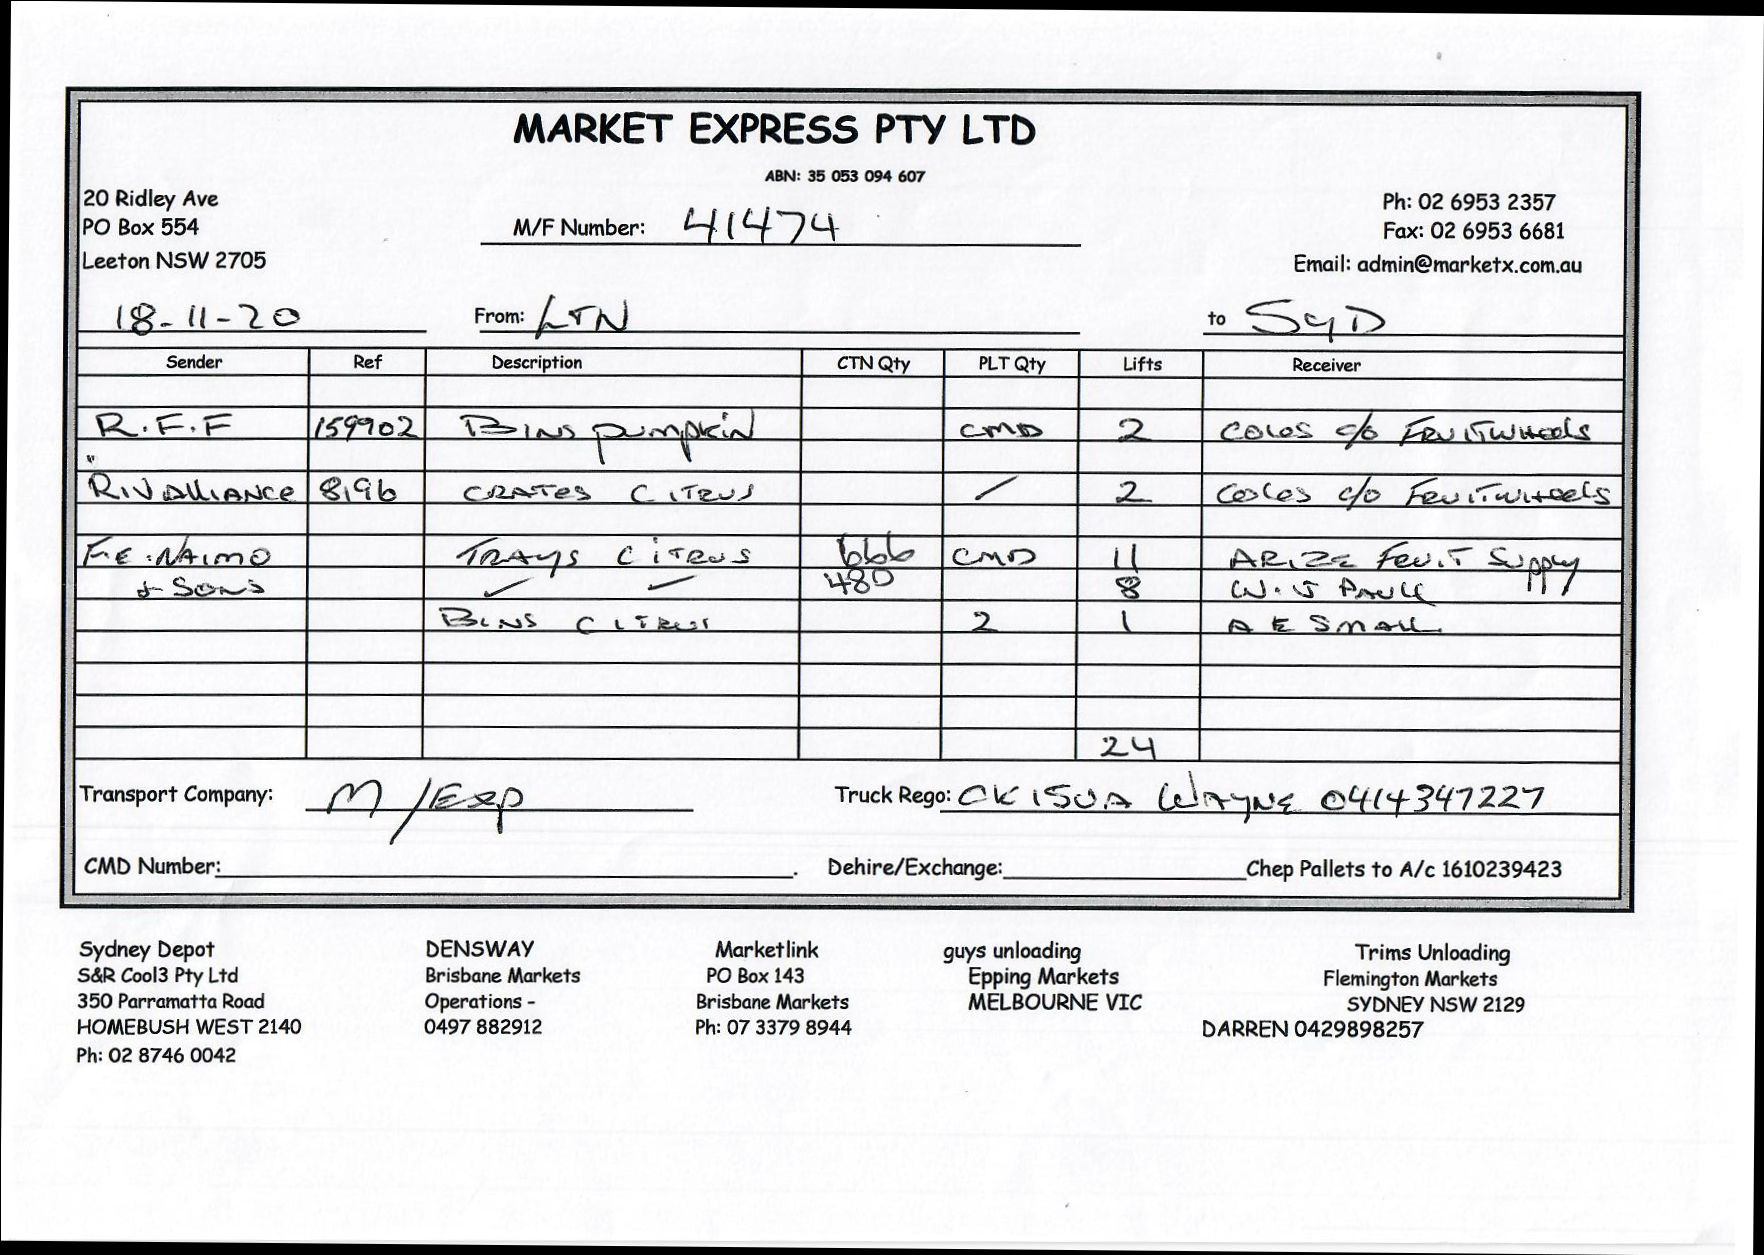 MARKET EXPRESS PTY LTD
ABN: 35 053 094 607
20 Ridley Ave
PO Box 554
Leeton NSW 2705
M/F Number: 41474
Ph: 02 6953 2357
Fax: 02 6953 6681
Email: admin@marketx.com.au
18-11-20 From: LTN to SYD
Sender Ref Description CTN Qty PLT Qty Lifts Receiver
R.F.F 159902 BINS pumpkin CMD 2 COLES c/o FRUITWHEELS
"
RIVALLIANCE 8196 CRATES CITRUS / 2 COLES c/o FRUITWHEELS
F.E. NAIMO TRAYS CITRUS 666 CMD 11 ARIZE FRUIT Supply
& SONS 480 8 W.J PAULL
BINS CITRUS 2 1 A E SMALL
24
Transport Company: M/Exp Truck Rego: WAYNE 0414347227
CMD Number: . Dehire/Exchange: Chep Pallets to A/c 1610239423
Sydney Depot
S&R Cool3 Pty Ltd
350 Parramatta Road
HOMEBUSH WEST 2140
Ph: 02 8746 0042
DENSWAY
Brisbane Markets
Operations -
0497 882912
Marketlink
PO Box 143
Brisbane Markets
Ph: 07 3379 8944
guys unloading
Epping Markets
MELBOURNE VIC
Trims Unloading
Flemington Markets
SYDNEY NSW 2129
DARREN 0429898257